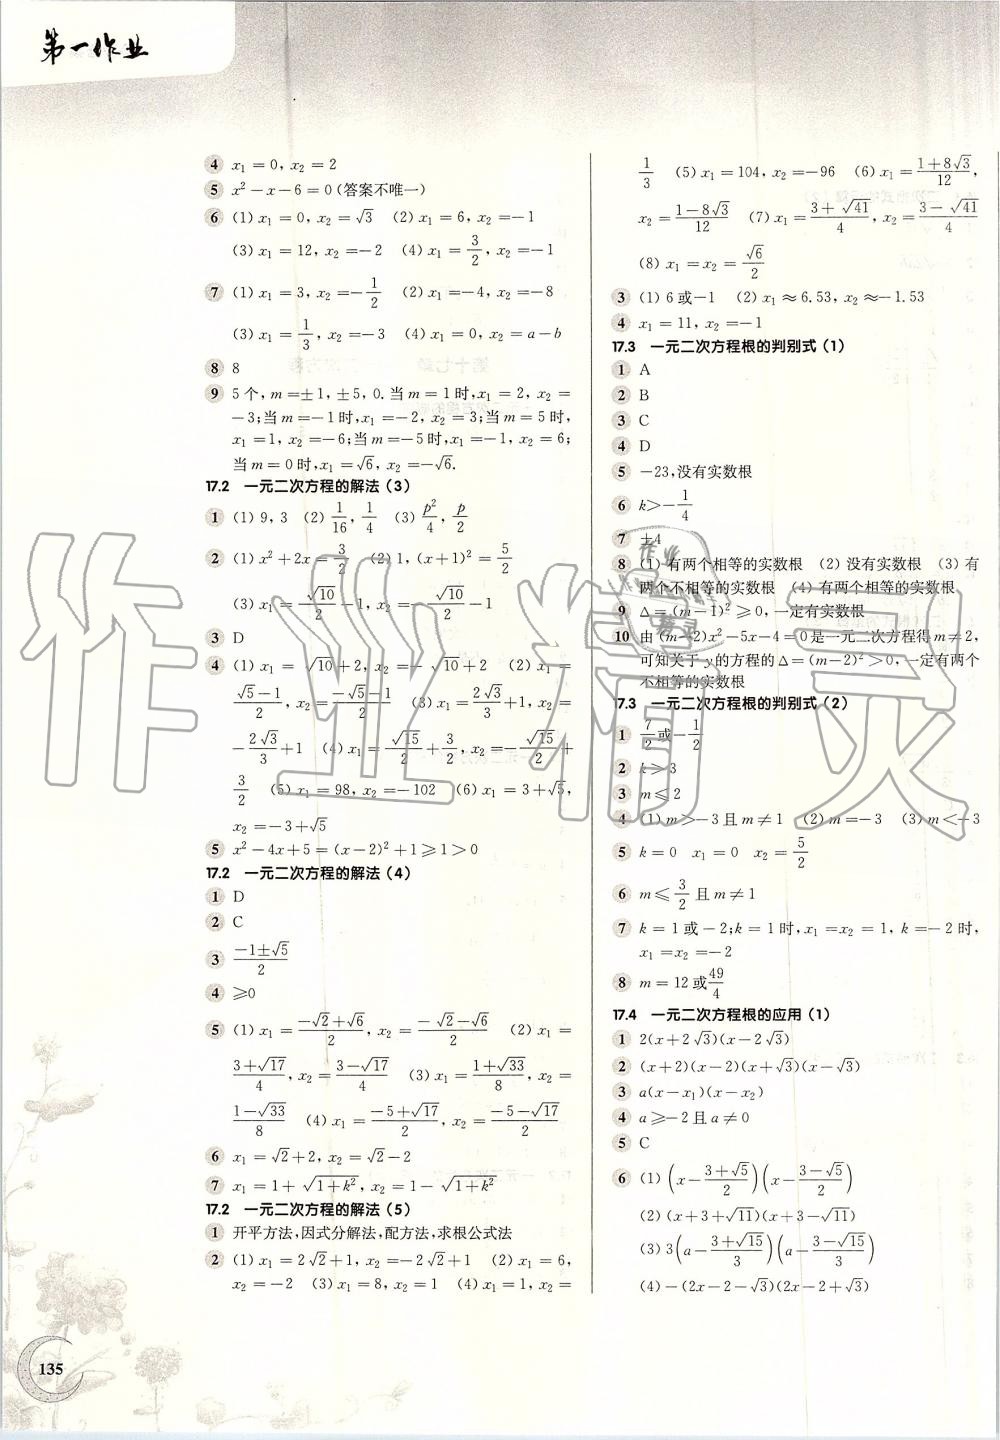 第一作业
4 x₁=0, x₂=2
5 x²-x-6=0(答案不唯一)
6 (1) x₁=0, x₂=√3 (2) x₁=6, x₂=-1
(3) x₁=12, x₂=-2 (4) x₁=3/2, x₂=-1
7 (1) x₁=3, x₂=-1/2 (2) x₁=-4, x₂=-8
(3) x₁=1/3, x₂=-3 (4) x₁=0, x₂=a-b
8 8
9 5个, m=±1, ±5, 0. 当m=1时, x₁=2, x₂=
-3;当m=-1时, x₁=-2, x₂=3;当m=5时,
x₁=1, x₂=-6;当m=-5时, x₁=-1, x₂=6;
当m=0时, x₁=√6, x₂=-√6.
17.2 一元二次方程的解法(3)
1 (1) 9, 3 (2) 1/16, 1/4 (3) p²/4, p/2
2 (1) x²+2x=3/2 (2) 1, (x+1)²=5/2
(3) x₁=√10/2-1, x₂=-√10/2-1
3 D
4 (1) x₁=√10+2, x₂=-√10+2 (2) x₁=
(√5-1)/2, x₂=(-√5-1)/2 (3) x₁=2√3/3+1, x₂=
-2√3/3+1 (4) x₁=√15/2+3/2, x₂=-√15/2+
3/2 (5) x₁=98, x₂=-102 (6) x₁=3+√5,
x₂=-3+√5
5 x²-4x+5=(x-2)²+1≥1>0
17.2 一元二次方程的解法(4)
1 D
2 C
3 (-1±√5)/2
4 ≥0
5 (1) x₁=(-√2+√6)/2, x₂=(-√2-√6)/2 (2) x₁=
(3+√17)/4, x₂=(3-√17)/4 (3) x₁=(1+√33)/8, x₂=
(1-√33)/8 (4) x₁=(-5+√17)/2, x₂=(-5-√17)/2
6 x₁=√2+2, x₂=√2-2
7 x₁=1+√(1+k²), x₂=1-√(1+k²)
17.2 一元二次方程的解法(5)
1 开平方法,因式分解法,配方法,求根公式法
2 (1) x₁=2√2+1, x₂=-2√2+1 (2) x₁=6,
x₂=-2 (3) x₁=8, x₂=1 (4) x₁=1, x₂=
1/3 (5) x₁=104, x₂=-96 (6) x₁=(1+8√3)/12,
x₂=(1-8√3)/12 (7) x₁=(3+√41)/4, x₂=(3-√41)/4
(8) x₁=x₂=√6/2
3 (1) 6或-1 (2) x₁≈6.53, x₂≈-1.53
4 x₁=11, x₂=-1
17.3 一元二次方程根的判别式(1)
1 A
2 B
3 C
4 D
5 -23,没有实数根
6 k>-1/4
7 ±4
8 (1) 有两个相等的实数根 (2) 没有实数根 (3) 有
两个不相等的实数根 (4) 有两个相等的实数根
9 Δ=(m-1)²≥0,一定有实数根
10 由(m-2)x²-5x-4=0是一元二次方程得m≠2,
可知关于y的方程的Δ=(m-2)²>0,一定有两个
不相等的实数根
17.3 一元二次方程根的判别式(2)
1 7/2或-1/2
2 k>3
3 m≤2
4 (1) m>-3且m≠1 (2) m=-3 (3) m<-3
5 k=0 x₁=0 x₂=5/2
6 m≤3/2且m≠1
7 k=1或-2;k=1时, x₁=x₂=1, k=-2时,
x₁=x₂=-2
8 m=12或49/4
17.4 一元二次方程根的应用(1)
1 2(x+2√3)(x-2√3)
2 (x+2)(x-2)(x+√3)(x-√3)
3 a(x-x₁)(x-x₂)
4 a≥-2且a≠0
5 C
6 (1) (x-(3+√5)/2)(x-(3-√5)/2)
(2) (x+3+√11)(x+3-√11)
(3) 3(a-(3+√15)/3)(a-(3-√15)/3)
(4) -(2x-2-√3)(2x-2+√3)
135
作业精灵
作业
精灵